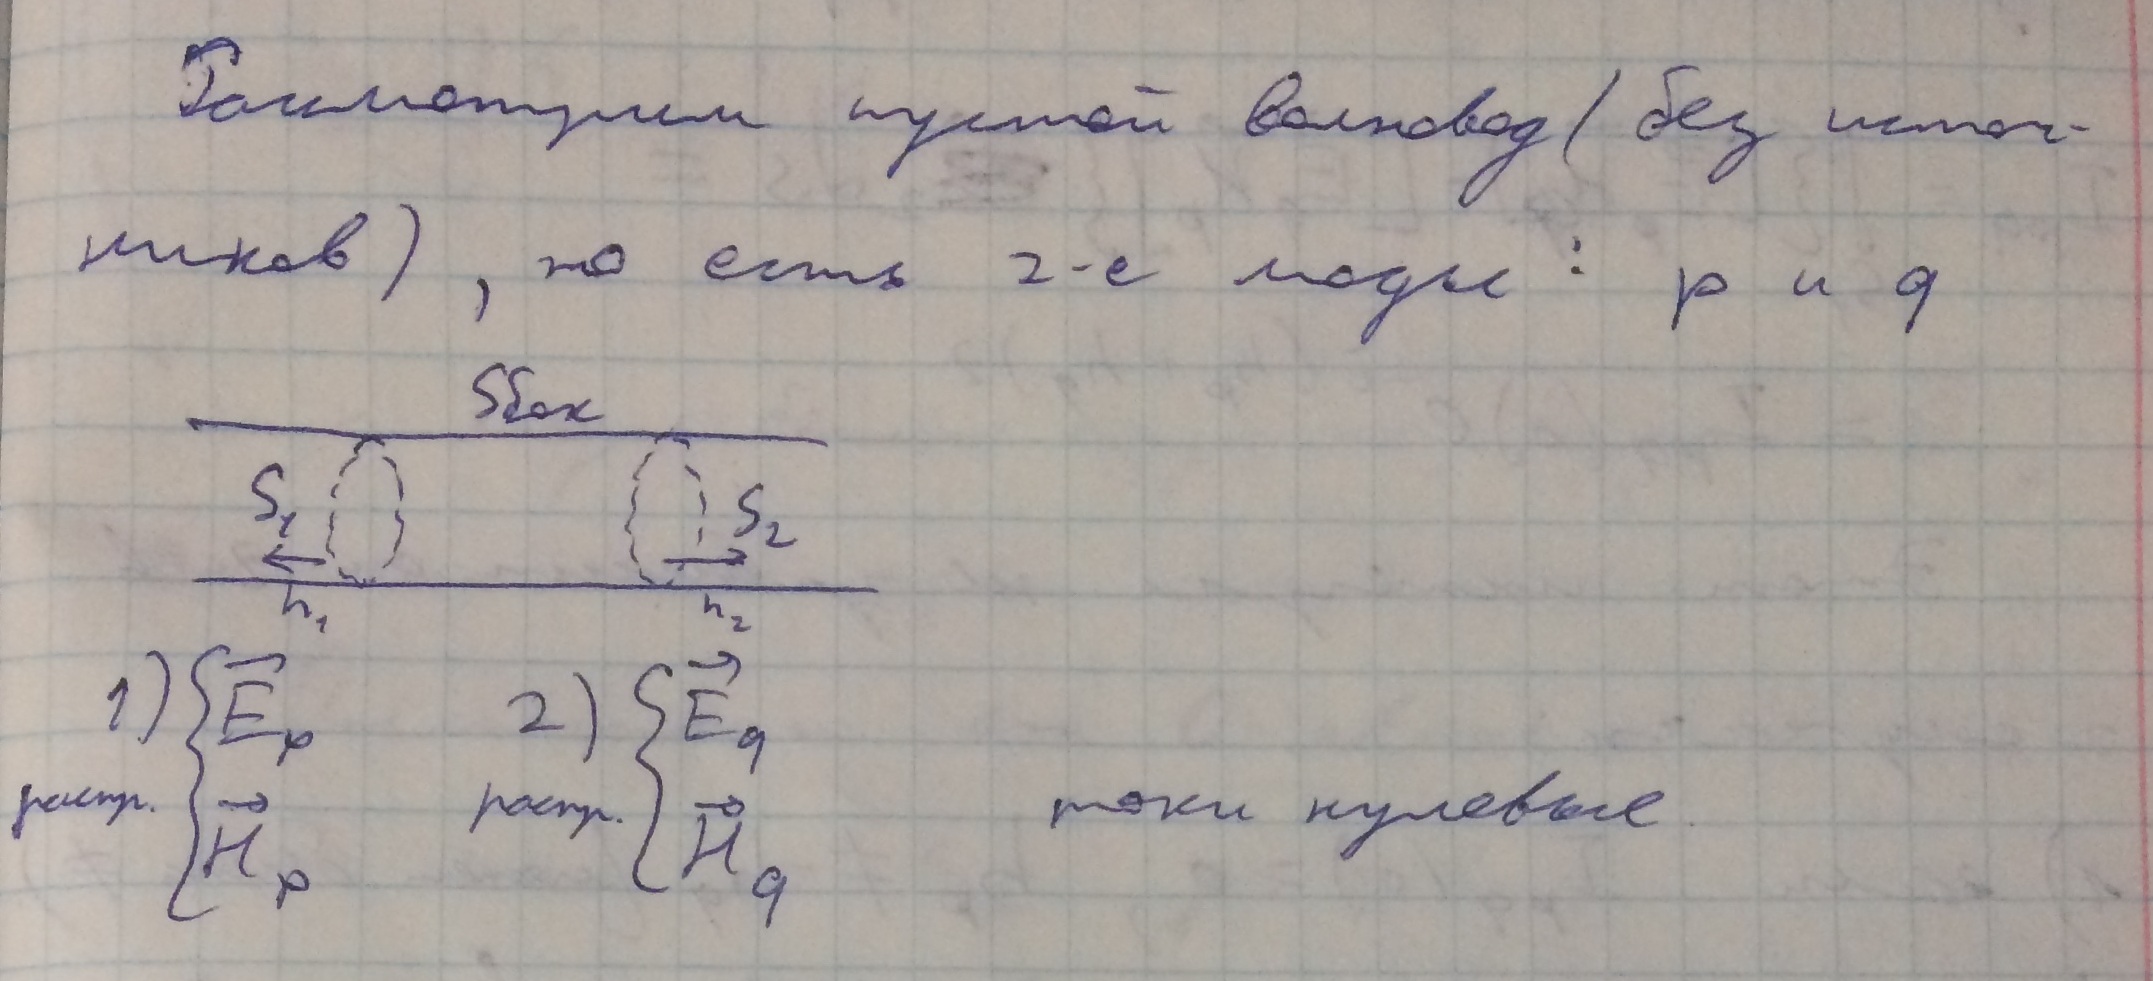 Рассмотрим пустой волновод (без источ-
ников), но есть 2-е моды: p и q
Sбок
S₁ S₂
n₁ n₂
1) { E⃗p 2) { E⃗q
распр. распр. токи нулевые.
H⃗p H⃗q